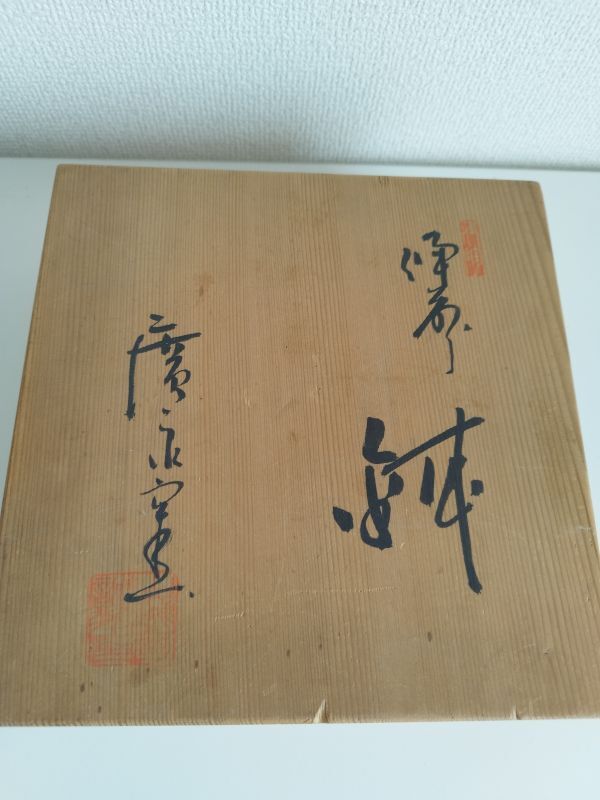 備前
鉢
廣永窯